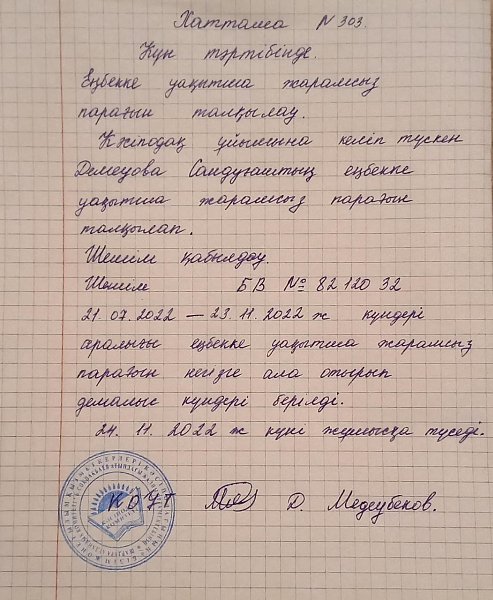 Хаттама № 303.
Күн тәртібінде.
Еңбекке уақытша жарамсыз
парағын талқылау.
Кәсіподақ ұйымына келіп түскен
Демеуова Сандуғаштың еңбекке
уақытша жарамсыз парағын
талқылап.
Шешім қабылдау.
Шешім БВ № 82 120 32
21.07.2022 — 23.11.2022 ж күндері
аралығы еңбекке уақытша жарамсыз
парағын негізге ала отырып
демалыс күндері берілді.
24. 11. 2022 ж күні жұмысқа түседі.
КОУТ Д. Медеубеков.